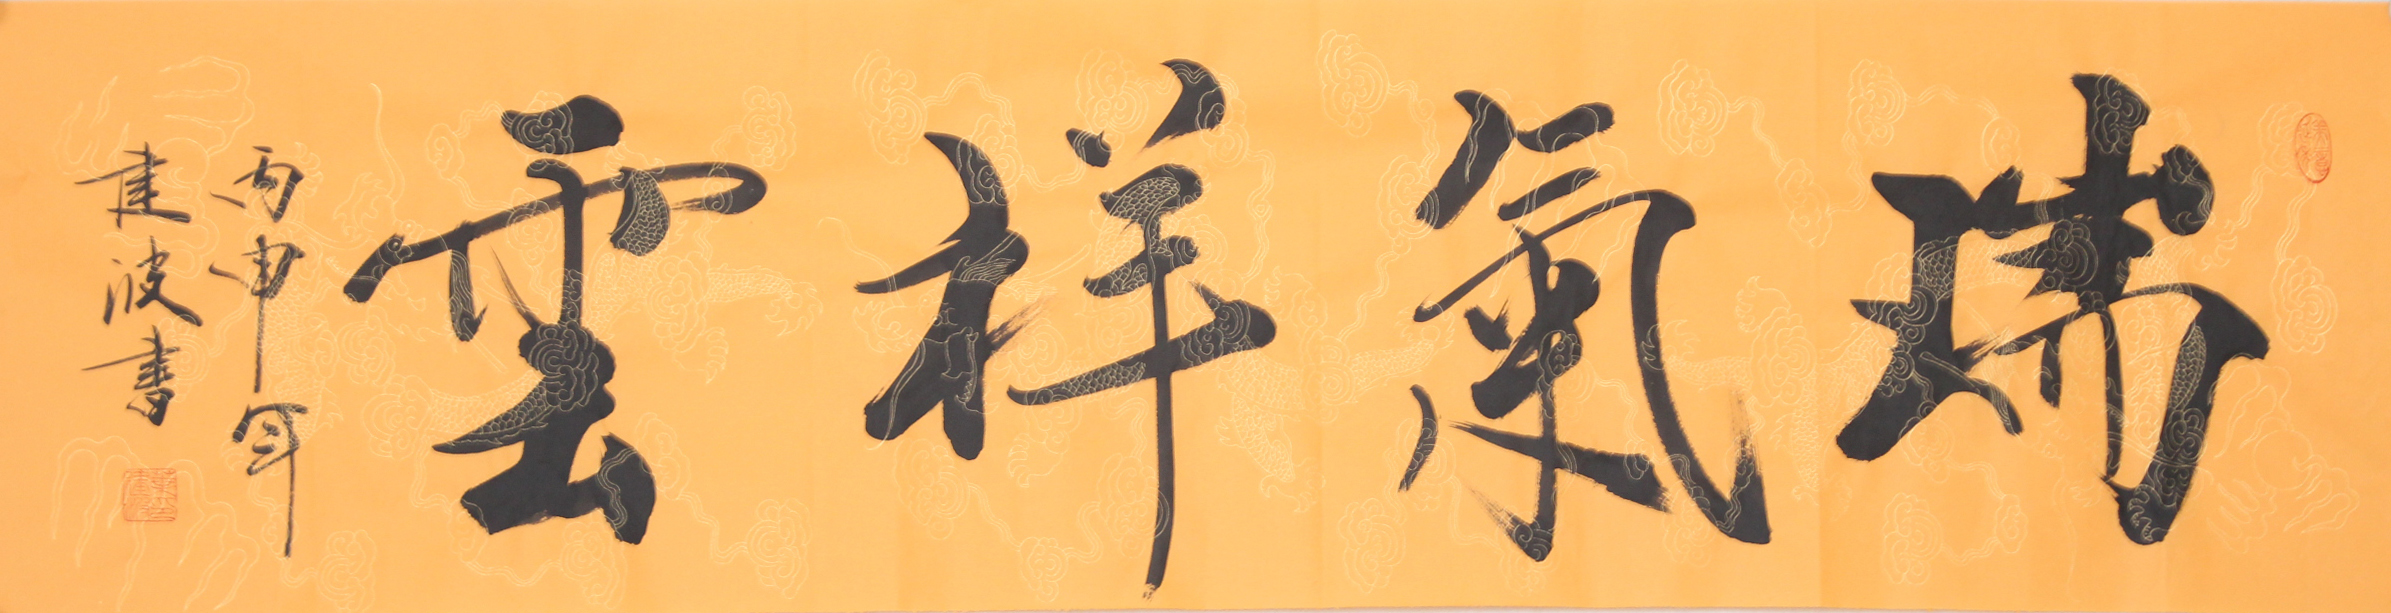 瑞氣祥雲
丙申年
建波書